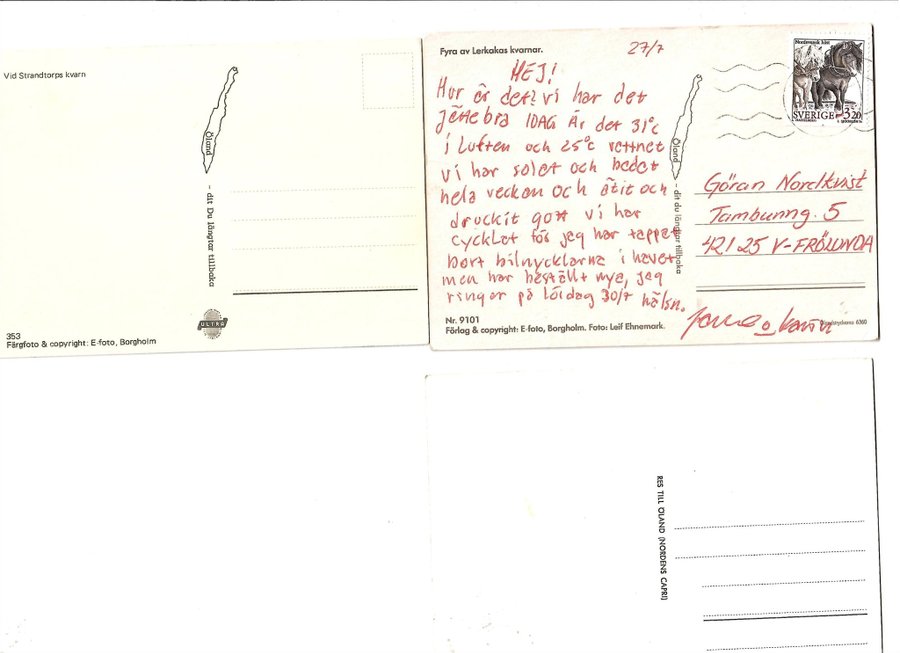 Vid Strandtorps kvarn
Öland
- dit Du längtar tillbaka
ULTRA
353
Färgfoto & copyright: E-foto, Borgholm
Fyra av Lerkakas kvarnar.
27/7
HEJ!
Hur är det? vi har det
jättebra IDAG Är det 31°c
i Luften och 25°c vattnet
vi har solat och badat
hela veckan och ätit och
druckit gott vi har
cycklat för jag har tappat
bort bilnycklarna i havet
men har beställt nya, jag
ringer på lördag 30/7 hälsn.
o Karin
Öland
- dit du längtar tillbaka
Nordsvensk häst
SVERIGE 3,20
Göran Nordkvist
Tambunng. 5
421 25 V-FRÖLUNDA
Nr. 9101
Förlag & copyright: E-foto, Borgholm. Foto: Leif Ehnemark.
6360
RES TILL ÖLAND (NORDENS CAPRI)